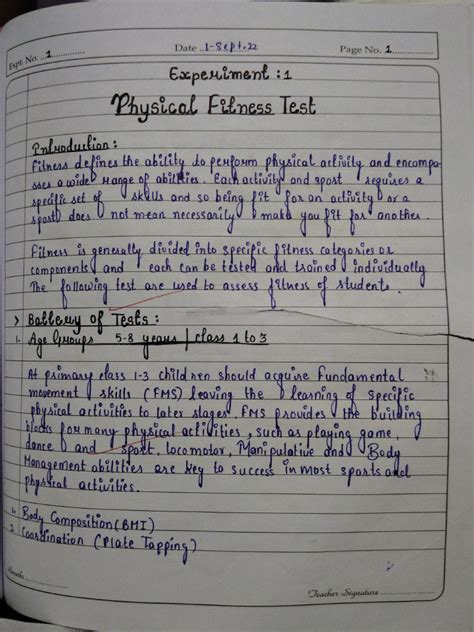 Expt. No. 1
Date 1-Sept.22
Page No. 1
Experiment : 1
Physical Fitness Test
Introduction :
Fitness defines the ability to perform physical activity and encompa-
sses a wide range of abilities. Each activity and sport requires a
specific set of skills and so being fit for an activity or a
sport does not mean necessarily make you fit for another.
Fitness is generally divided into specific fitness categories or
components and each can be tested and trained individually
The following test are used to assess fitness of students.
> Battery of Tests :
1. Age Groups 5-8 years / class 1 to 3
At primary class 1-3 children should acquire Fundamental
movement skills (FMS) leaving the learning of specific
physical activities to later stages. FMS provides the building
blocks for many physical activities, such as playing game,
dance and sport, locomotor, Manipulative and Body
Management abilities are key to success in most sports and
physical activities.
1. Body Composition (BMI)
2. Coordination (Plate Tapping)
Teacher Signature